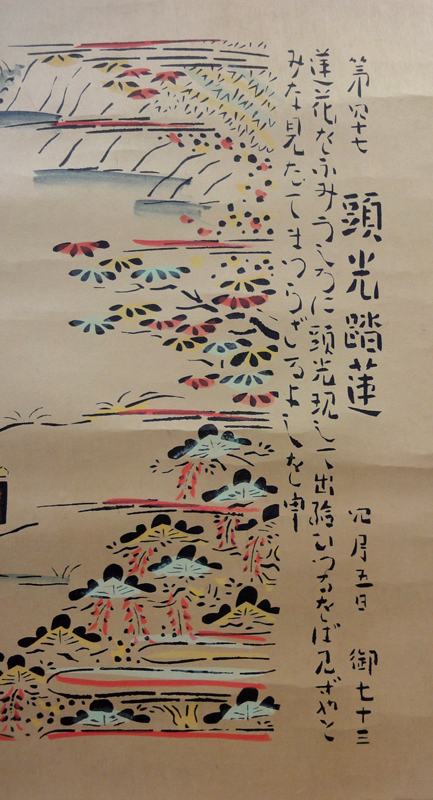 第四十七 頭光踏蓮 四月五日 御七十三
蓮花をふみうしろに頭光現して出給ひつるをば見ずやと
みな見たてまつらざるよしを申